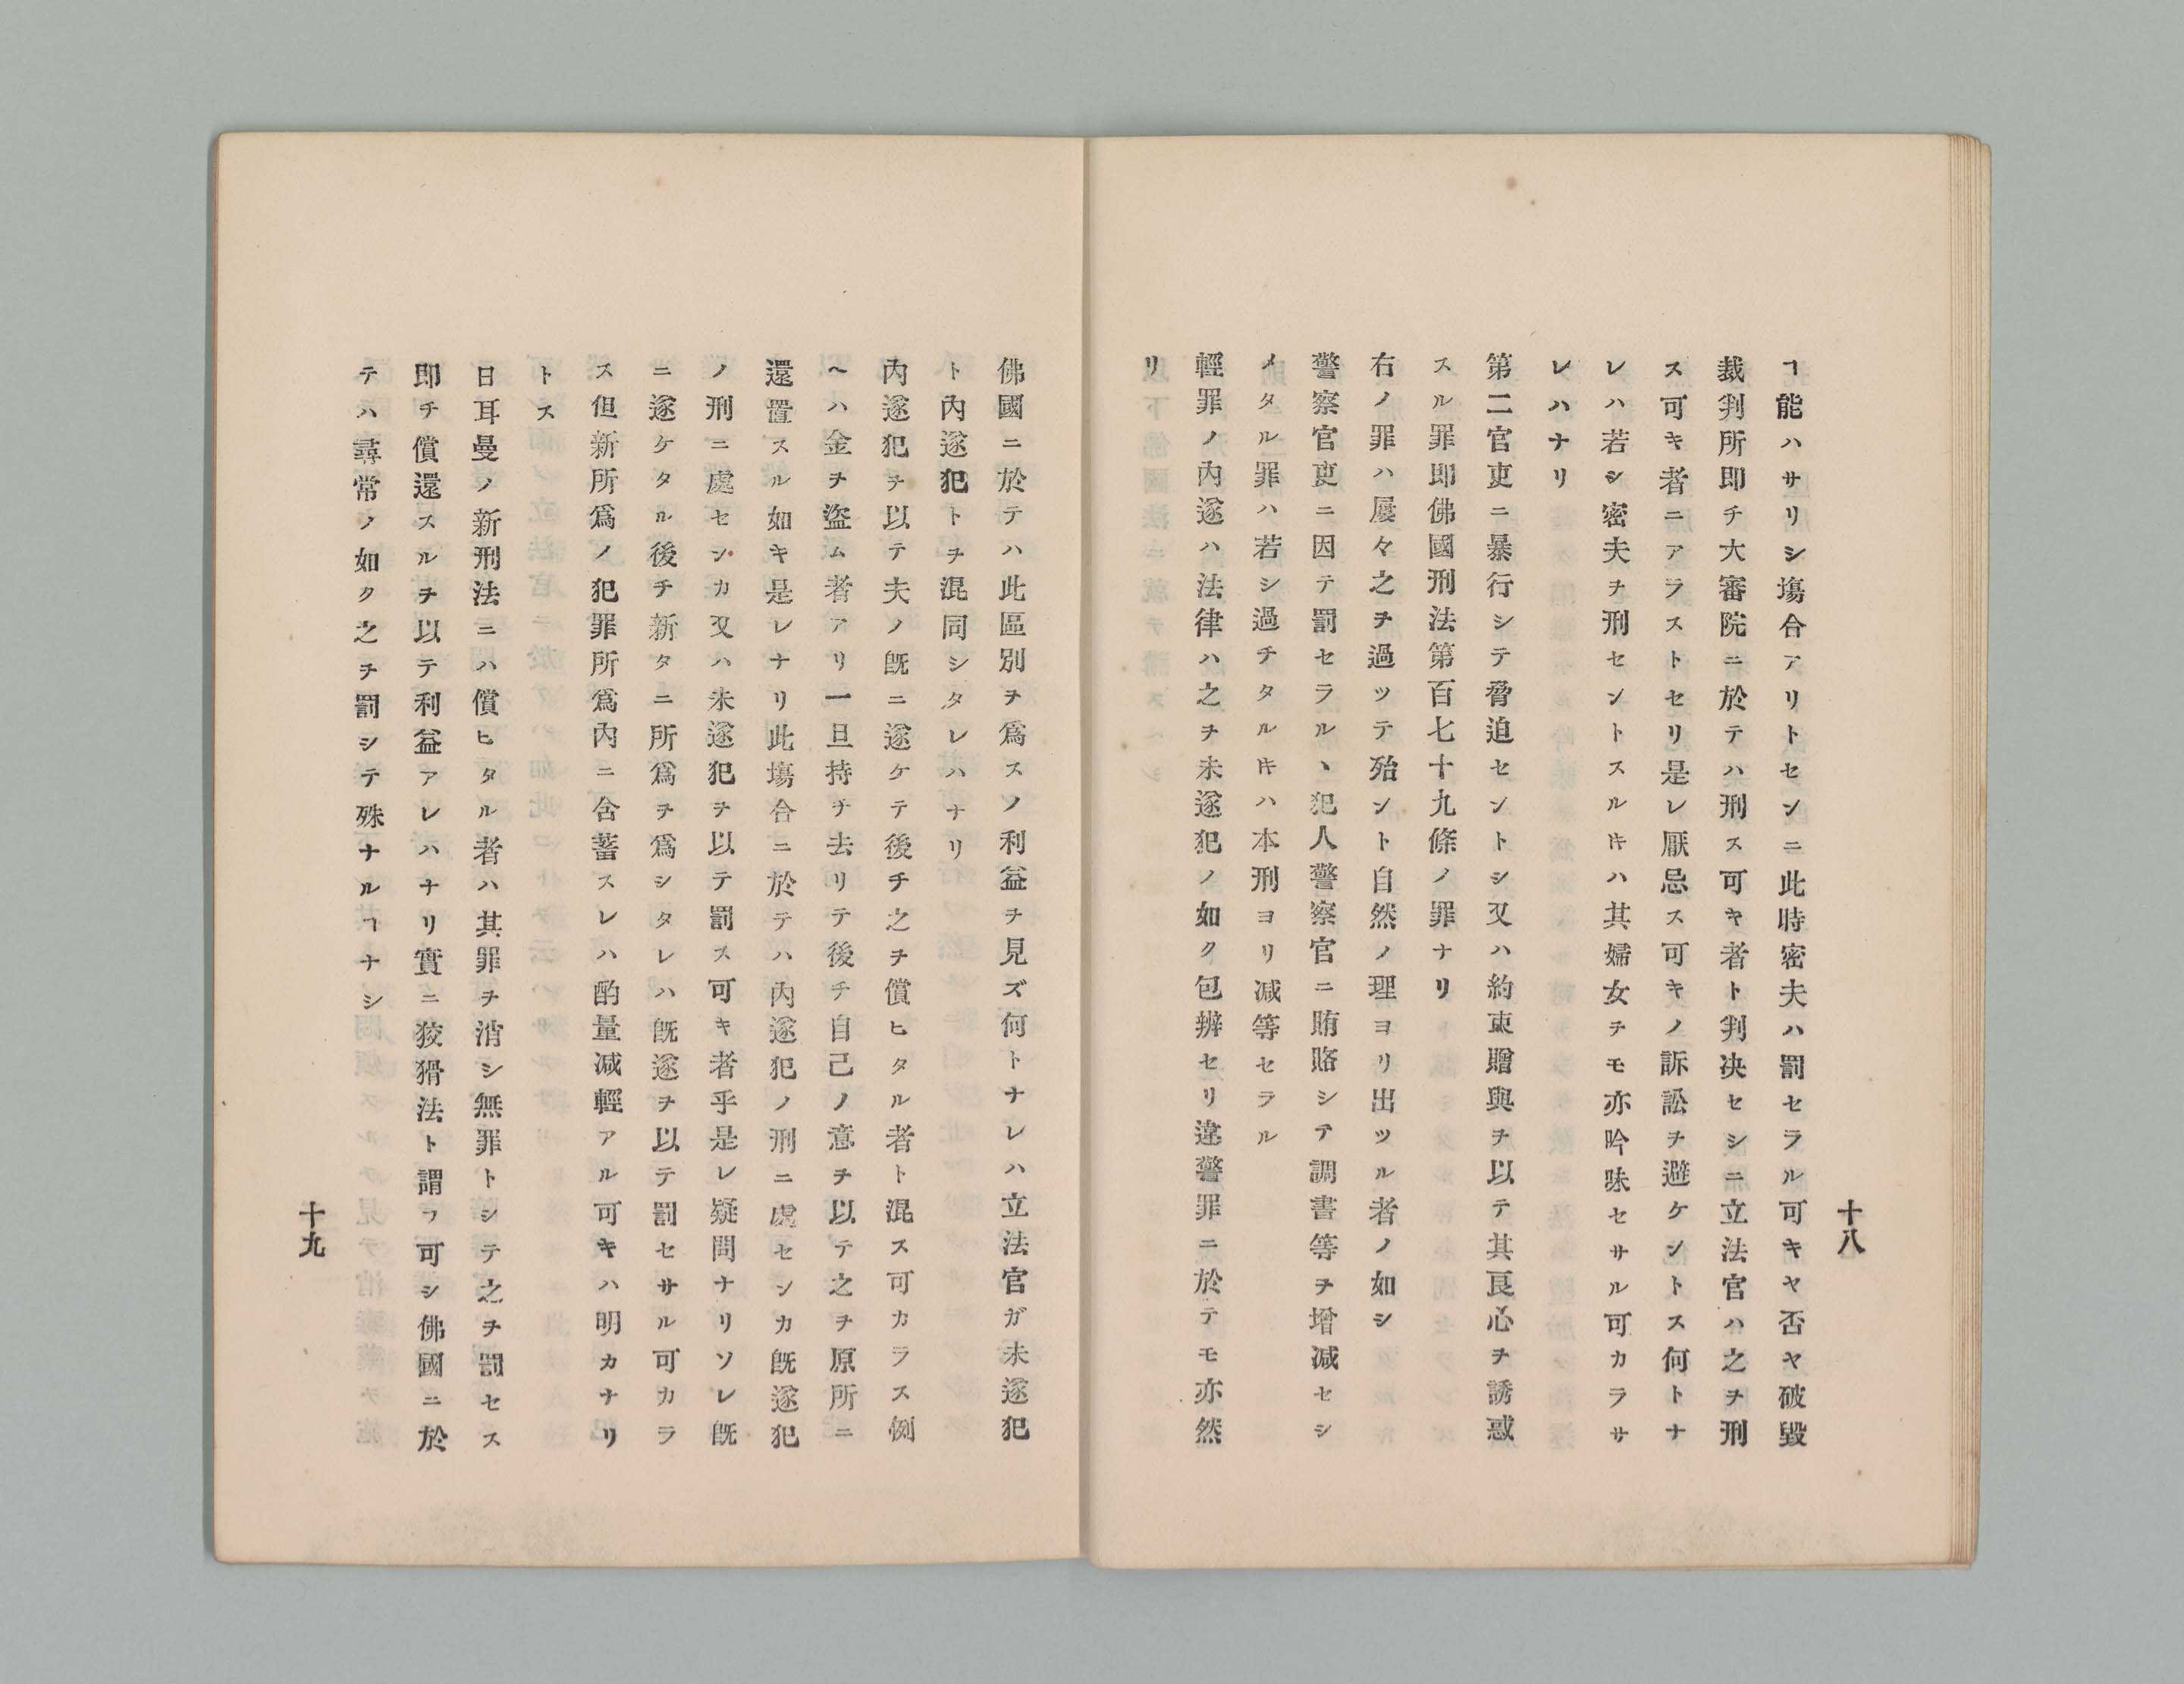 ヿ能ハサリシ塲合アリトセンニ此時密夫ハ罰セラル可キヤ否ヤ破毀
裁判所即チ大審院ニ於テハ刑ス可キ者ト判决セシニ立法官ハ之ヲ刑
ス可キ者ニアラストセリ是レ厭忌ス可キノ訴訟ヲ避ケントス何トナ
レハ若シ密夫ヲ刑セントスルㇳキハ其婦女ヲモ亦吟味セサル可カラサ
レハナリ
第二官吏ニ暴行シテ脅迫セントシ又ハ約束贈與ヲ以テ其良心ヲ誘惑
スル罪即佛國刑法第百七十九條ノ罪ナリ
右ノ罪ハ屢々之ヲ過ツテ殆ント自然ノ理ヨリ出ツル者ノ如シ
警察官吏ニ因テ罰セラル、犯人警察官ニ賄賂シテ調書等ヲ增减セシ
メタル罪ハ若シ過チタルㇳキハ本刑ヨリ减等セラル
輕罪ノ內遂ハ法律ハ之ヲ未遂犯ノ如ク包辨セリ違警罪ニ於テモ亦然
リ
十八
佛國ニ於テハ此區別ヲ爲スノ利益ヲ見ズ何トナレハ立法官ガ未遂犯
ト內遂犯トヲ混同シタレハナリ
內遂犯ヲ以テ夫ノ旣ニ遂ケテ後チ之ヲ償ヒタル者ト混ス可カラス例
ヘハ金ヲ盜ム者アリ一旦持チ去リテ後チ自己ノ意ヲ以テ之ヲ原所ニ
還置スル如キ是レナリ此塲合ニ於テハ內遂犯ノ刑ニ處センカ旣遂犯
ノ刑ニ處センカ又ハ未遂犯ヲ以テ罰ス可キ者乎是レ疑問ナリソレ旣
ニ遂ケタル後チ新タニ所爲ヲ爲シタレハ旣遂ヲ以テ罰セサル可カラ
ス但新所爲ノ犯罪所爲內ニ含蓄スレハ酌量减輕アル可キハ明カナリ
トス
日耳曼ノ新刑法ニハ償ヒタル者ハ其罪ヲ消シ無罪トシテ之ヲ罰セス
即チ償還スルヲ以テ利益アレハナリ實ニ狡猾法ト謂フ可シ佛國ニ於
テハ尋常ノ如ク之ヲ罰シテ殊ナルヿナシ
十九